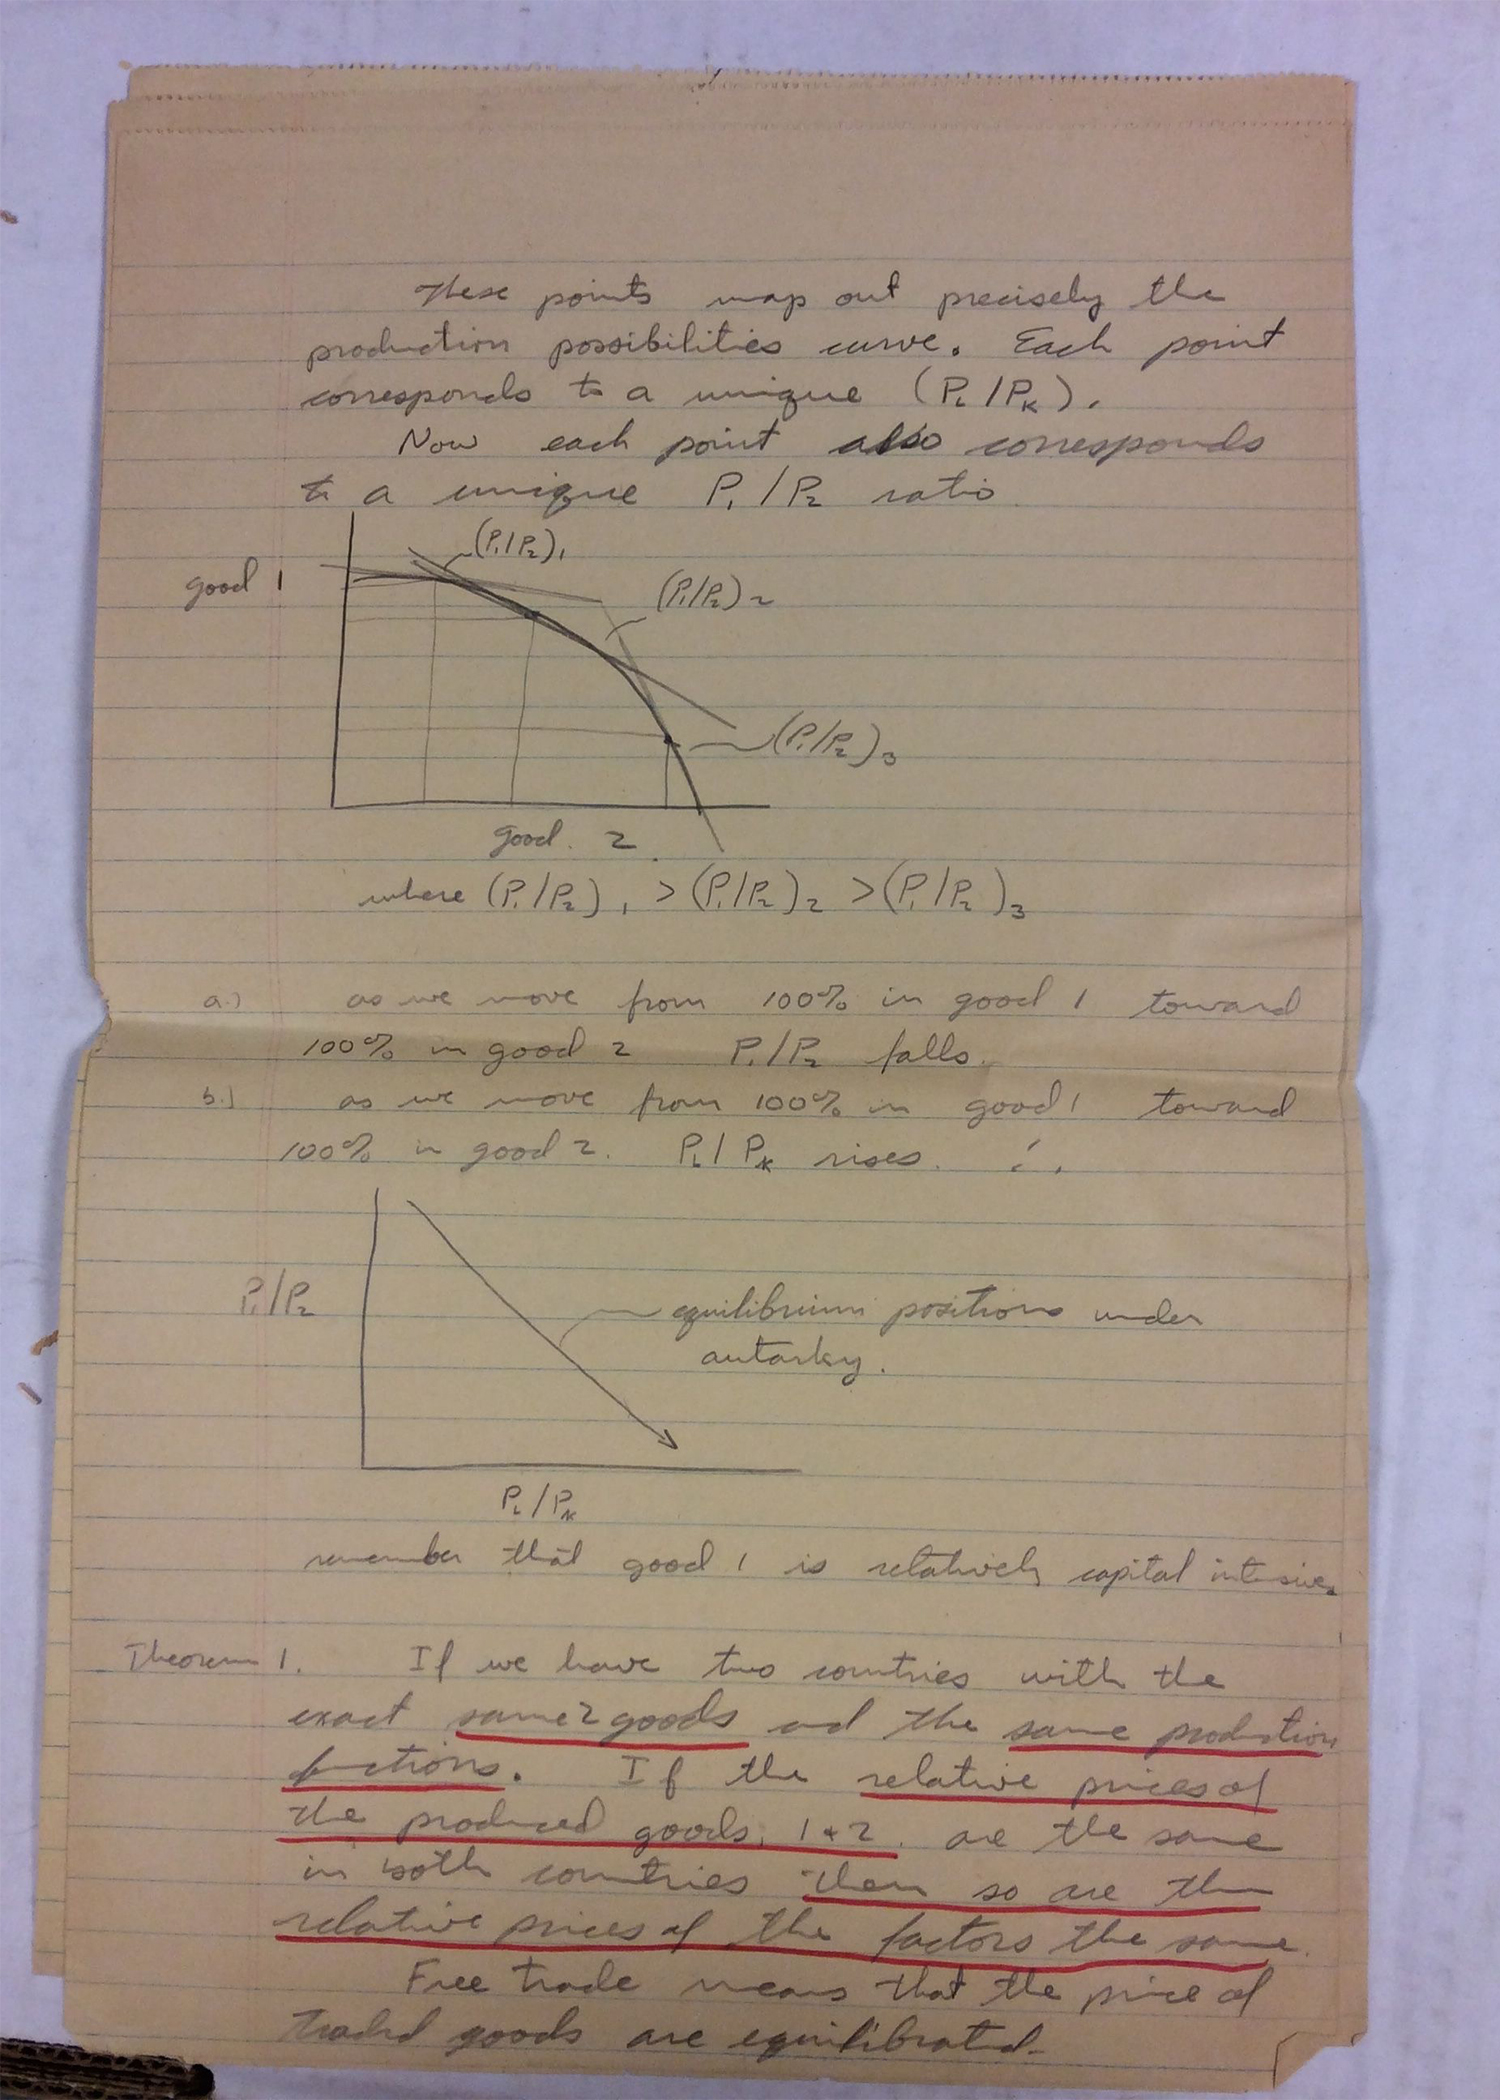 These points map out precisely the
production possibilities curve. Each point
corresponds to a unique (PL/PK).
Now each point also corresponds
to a unique P1/P2 ratio
(P1/P2)1
good 1
(P1/P2)2
(P1/P2)3
good 2
where (P1/P2)1 > (P1/P2)2 > (P1/P2)3
a.) as we move from 100% in good 1 toward
100% in good 2 P1/P2 falls.
b.) as we move from 100% in good 1 toward
100% in good 2. PL/PK rises. ∴
P1/P2
equilibrium positions under
autarky.
PL/PK
remember that good 1 is relatively capital intensive.
Theorem 1. If we have two countries with the
exact same 2 goods and the same production
functions. If the relative prices of
the produced goods, 1 + 2, are the same
in both countries then so are the
relative prices of the factors the same.
Free trade means that the price of
traded goods are equilibrated.